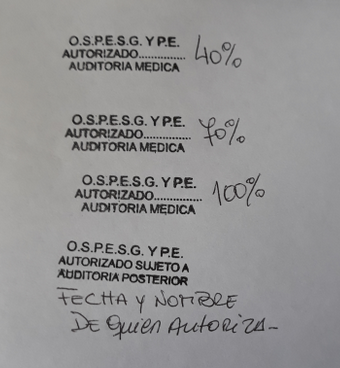 O.S.P.E.S.G. Y P.E.
AUTORIZADO............... 40%
AUDITORIA MEDICA
O.S.P.E.S.G. Y P.E.
AUTORIZADO............... 70%
AUDITORIA MEDICA
O.S.P.E.S.G. Y P.E.
AUTORIZADO............... 100%
AUDITORIA MEDICA
O.S.P.E.S.G. Y P.E.
AUTORIZADO SUJETO A
AUDITORIA POSTERIOR
FECHA Y NOMBRE
DE QUIEN AUTORIZA-